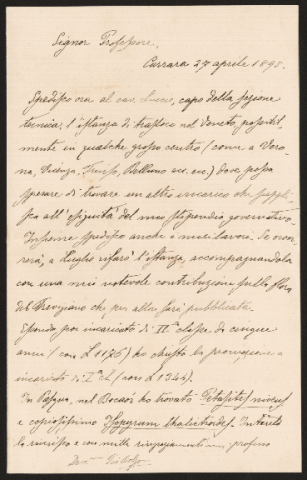 Signor Professore,
Carrara 27 aprile 1895.
Spedisco ora al cav. capo della sezione
tecnica, l'istanza di trasloco nel Veneto possibil,
mente in qualche grosso centro (come a Vero,
na, Vicenza, Treviso, Belluno ecc. ecc.) dove, possa
sperare di trovare un altro incarico che suppli,
sca all'esiguità del mio stipendio governativo.
Insieme spedisco anche i miei lavori. Se occor,
rerà, a Luglio rifarò l'istanza, accompagnandola
con una mia notevole contribuzione sulla flora
del Trevigiano che per allora sarà pubblicata.
Essendo poi incaricato di IIª classe da cinque
anni (con L 1176) ho chiesto la promozione a
incaricato di Iª cl. (con L 1344).
In Pasqua, nel ho trovato Petasites niveus
e copiosissimo Isopyrum thalictroides. Intanto
la riverisco e con mille ringraziamenti mi professo
Dev.mo